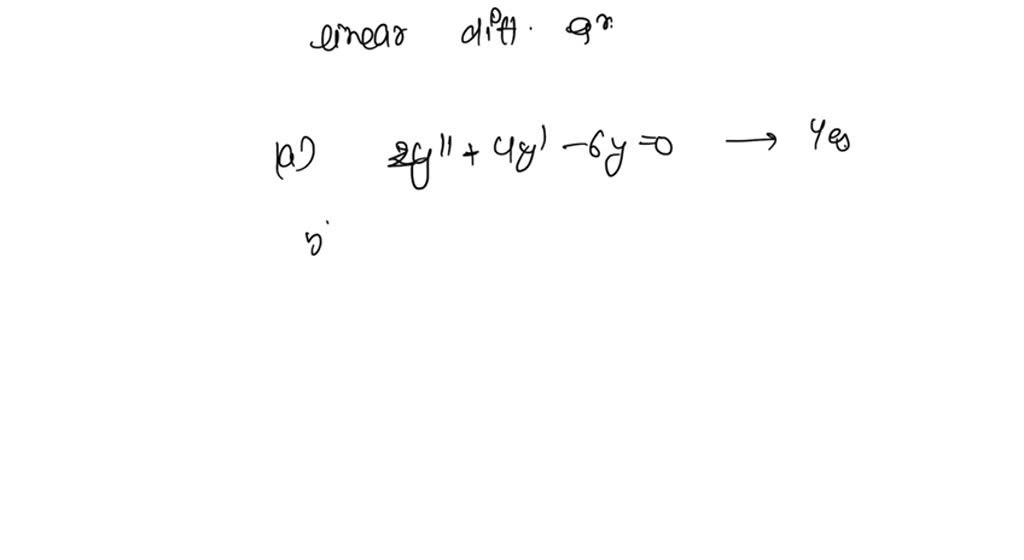 linear diff. qn.
(a) 2y'' + 4y' - 6y = 0 → Yes